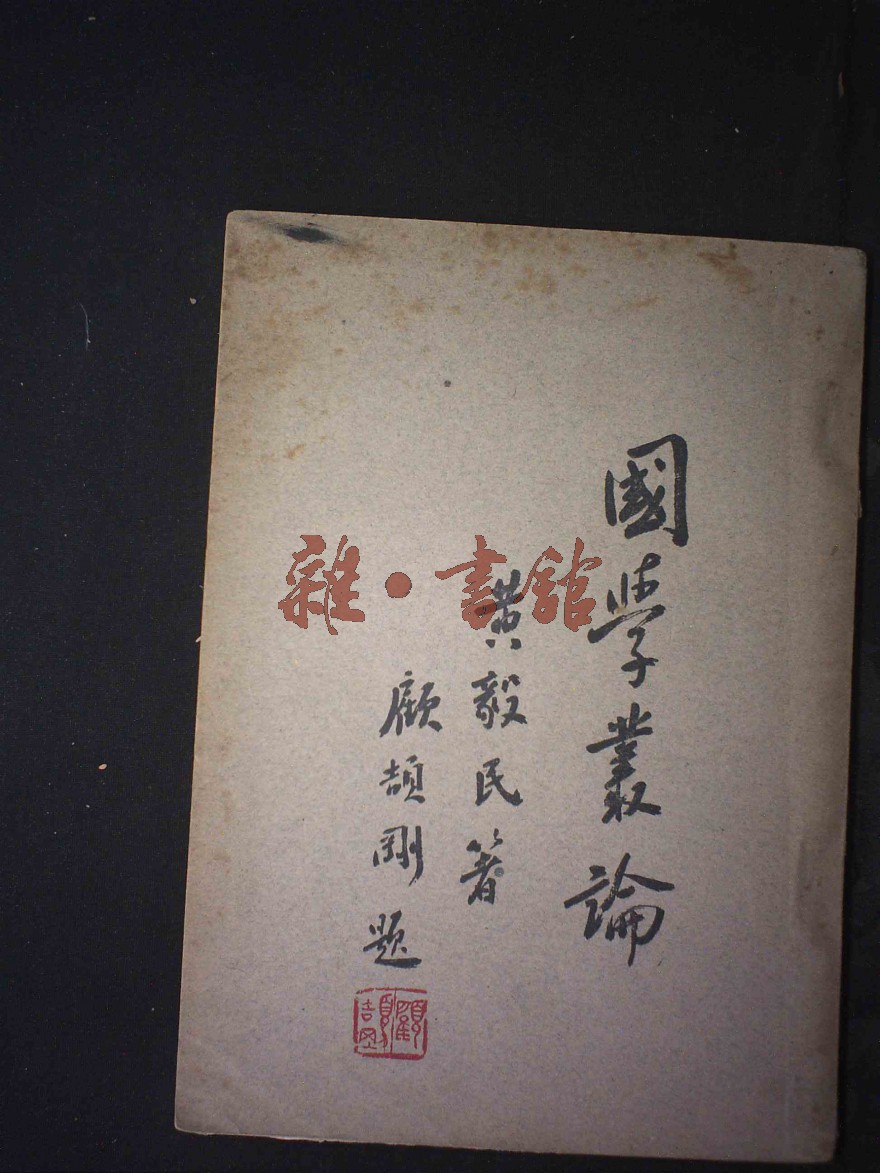 國學叢論
黃毅民著
顧頡剛題
顧頡剛
雜·書館